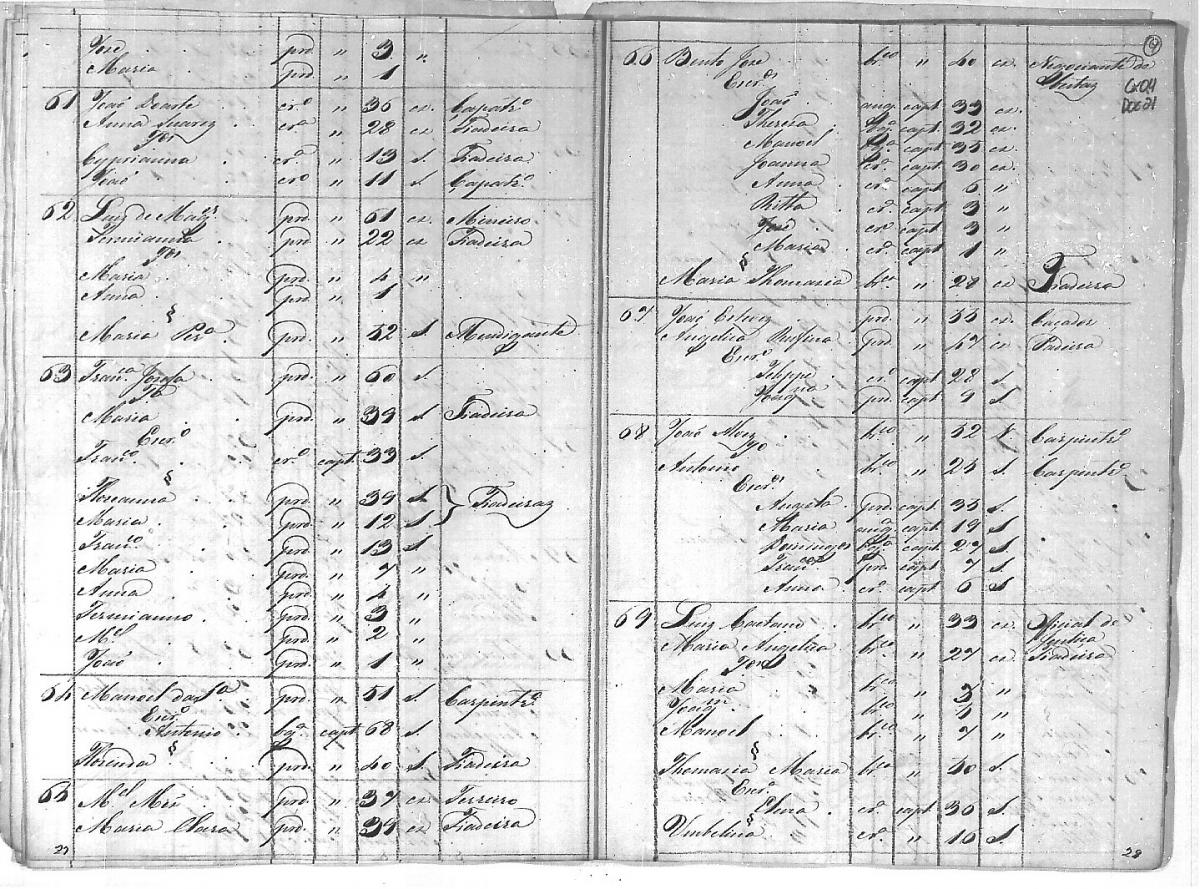 José prd. " 3 "
Maria prd. " 1
61 João Duarte crº " 36 cz. Çapatrº
Anna Suarez crª " 28 cz Fiadeira
Fos
Cyprianna crª " 13 S. Fiadeira
João crº " 11 S Çapatrº
62 Luiz de prd. " 61 cz Mineiro
prd " 22 cz Fiadeira
Fos
Maria prd. " 4 "
Anna prd. " 1
§
Maria Perª prd. " 52 S. Mendigante
63 Francª Josefa prd. " 60 S.
Fª
Maria prd. " 39 S Fiadeira
Escrº
Francº crº capt. 33 S
§
Floreanna prd " 39 S. } Fiadeiras
Maria prd " 12 S
Francº prd. " 13 S
Maria prd. " 7 "
Anna prd. " 4 "
Fermianno prd. " 3 "
Mel prd. " 2 "
João prd. " 1 "
64 Manoel da Sª prd. " 51 S. Carpintrº
Escrº
Antonio capt 68 S.
§
prd. " 40 S. Fiadeira
65 Mel prd. " 37 cz. Ferreiro
Maria Clara prd. " 39 cz Fiadeira
27
9
66 Bento José brco " 40 cz. Negociante de
Escrs
João ang. capt 33 cz.
Cx 04
Doc 21
Thereza capt. 32 cz.
Manoel capt 35 cz.
Joanna crª capt 30 cz.
Anna crª capt 6 "
Ritta crª capt 3 "
José crº capt 3 "
Maria crª capt 1 "
§
Maria Thomazia brca " 28 cz Fiadeira
67 João Esteves prd. " 55 cz. Caçador
Angelica Rufina prd. " 47 cz Fiadeira
Escrs
Felippe crº capt 28 S.
prd capt 9 S
68 João Alvez brco " 52 Carpintrº
Fo
Antonio brco " 25 S. Carpintrº
Escrs
Augusta prd capt. 35 S.
Maria ang. capt 19 S
Domingos capt 27 S
Francº prd capt 7 S
Anna crª capt 6 S
69 Luiz Caetano brco " 33 cz. Oficial de
Justiça
Maria Angelica brca " 27 cz Fiadeira
Fos
Maria brca " "
Joaqm brco " "
Manoel brco " 7 "
§
Thomazia Maria brca " 40 S
Escrª
crª capt 30 S.
§
Umbelina crª " 16 S.
28